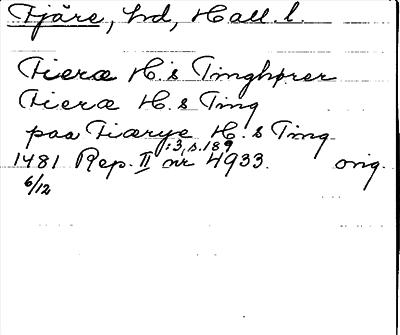 Fjäre, hd, Hall. l.
Fieræ H.s Tinghører
Fieræ H. s Ting
paa Fiærye H. s Ting
:3, s. 189
1481 Rep. II nr 4933. orig.
6/12